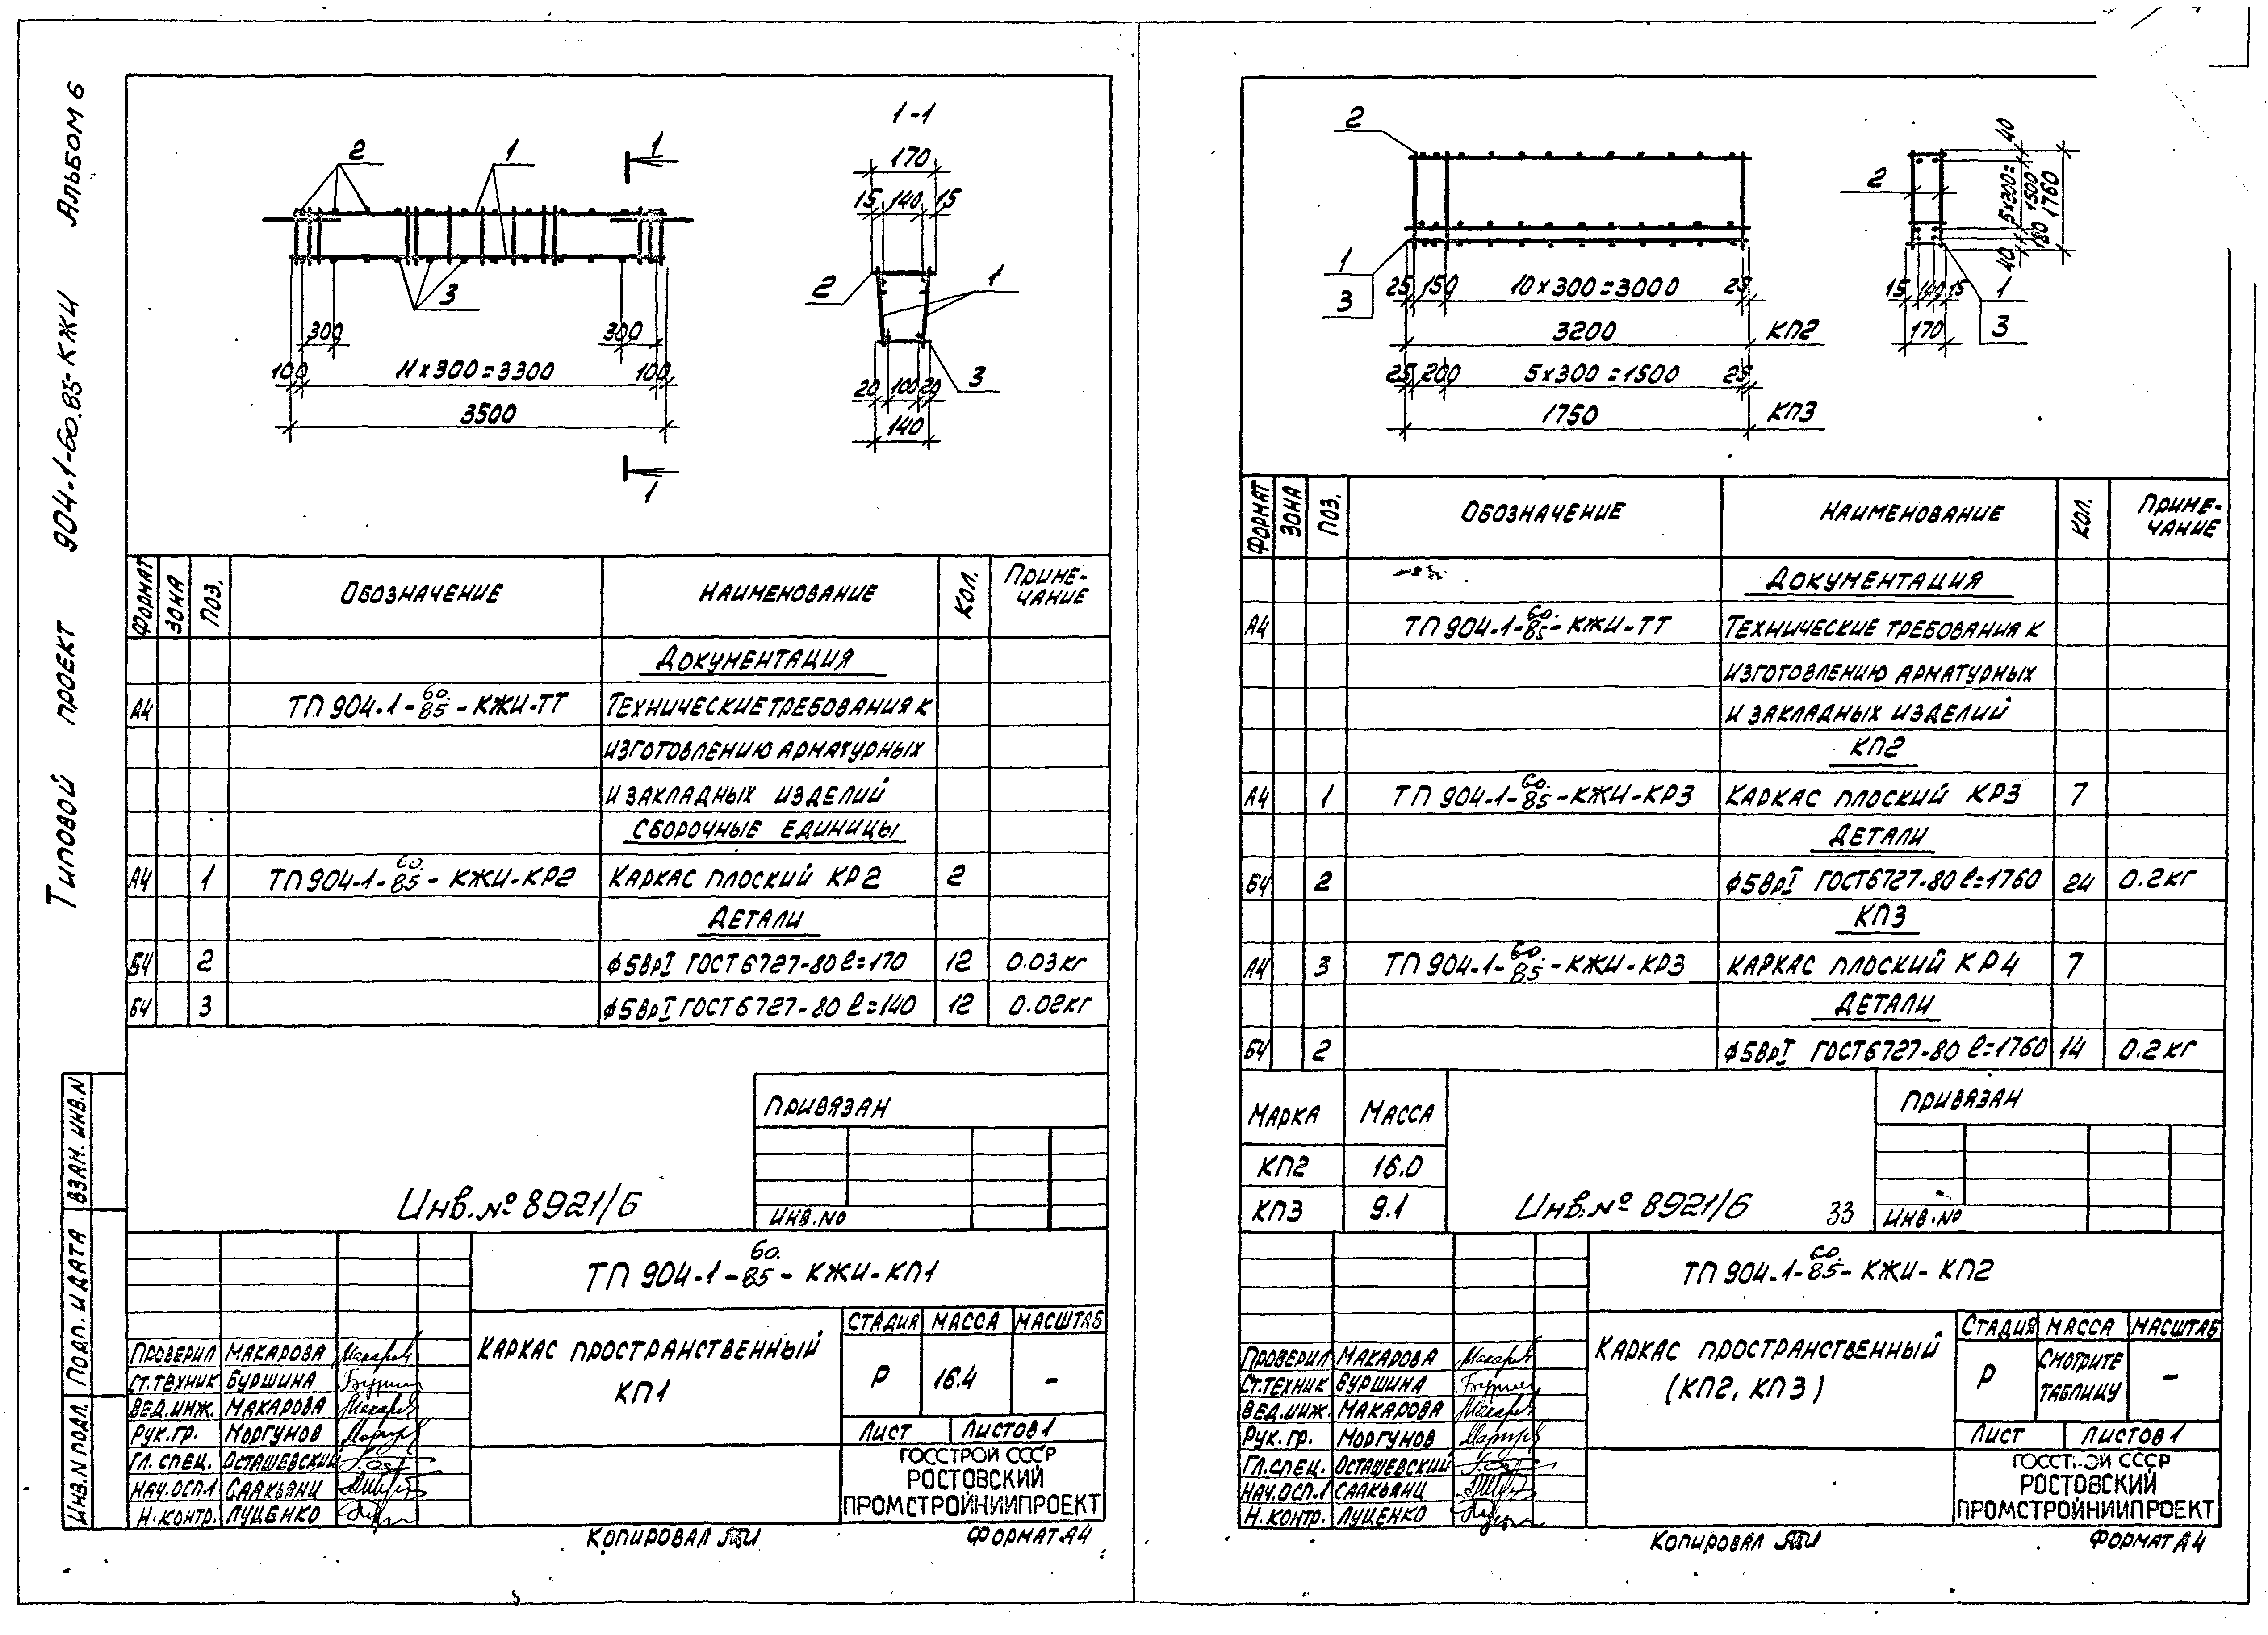 Типовой проект 904-1-60.85-КЖИ Альбом 6
2
1
1
3
300
300
100
11×300=3300
100
3500
1
1-1
170
15 140 15
2
1
3
20 100 20
140
Формат
Зона
Поз.
Обозначение
Наименование
Кол.
Приме-
чание
Документация
А4 ТП 904-1-60.85-КЖИ-ТТ Технические требования к
изготовлению арматурных
и закладных изделий
Сборочные единицы
А4 1 ТП 904-1-60.85-КЖИ-КР2 Каркас плоский КР2 2
Детали
Б4 2 ϕ5ВрI ГОСТ 6727-80 ℓ=170 12 0.03кг
Б4 3 ϕ5ВрI ГОСТ 6727-80 ℓ=140 12 0.02кг
Привязан
Инв.№ 8921/6
Инв.№
Взам. инв.N
Подп. и дата
Инв.N подл.
ТП 904-1-60.85-КЖИ-КП1
Каркас пространственный
КП1
Стадия Масса Масштаб
Р 16.4 –
Лист Листов 1
ГОССТРОЙ СССР
РОСТОВСКИЙ
ПРОМСТРОЙНИИПРОЕКТ
Проверил Макарова
Ст.техник Буршина
Вед.инж. Макарова
Рук.гр. Моргунов
Гл.спец. Осташевский
Нач.осп.1 Саакьянц
Н.контр. Луценко
Копировал
Формат А4
2
1
3
25 150 10×300=3000 25
3200 КП2
25 200 5×300=1500 25
1750 КП3
2
40
5×300=
1500
1760
180
40
15 140 15
170
1
3
Формат
Зона
Поз.
Обозначение
Наименование
Кол.
Приме-
чание
Документация
А4 ТП 904-1-60.85-КЖИ-ТТ Технические требования к
изготовлению арматурных
и закладных изделий
КП2
А4 1 ТП 904-1-60.85-КЖИ-КР3 Каркас плоский КР3 7
Детали
Б4 2 ϕ5ВрI ГОСТ 6727-80 ℓ=1760 24 0.2кг
КП3
А4 3 ТП 904-1-60.85-КЖИ-КР3 Каркас плоский КР4 7
Детали
Б4 2 ϕ5ВрI ГОСТ 6727-80 ℓ=1760 14 0.2кг
Марка Масса
КП2 16.0
КП3 9.1
Привязан
Инв.№ 8921/6 33
Инв.№
ТП 904-1-60.85-КЖИ-КП2
Каркас пространственный
(КП2, КП3)
Стадия Масса Масштаб
Р Смотрите
таблицу –
Лист Листов 1
ГОССТРОЙ СССР
РОСТОВСКИЙ
ПРОМСТРОЙНИИПРОЕКТ
Проверил Макарова
Ст.техник Буршина
Вед.инж. Макарова
Рук.гр. Моргунов
Гл.спец. Осташевский
Нач.осп.1 Саакьянц
Н.контр. Луценко
Копировал
Формат А4